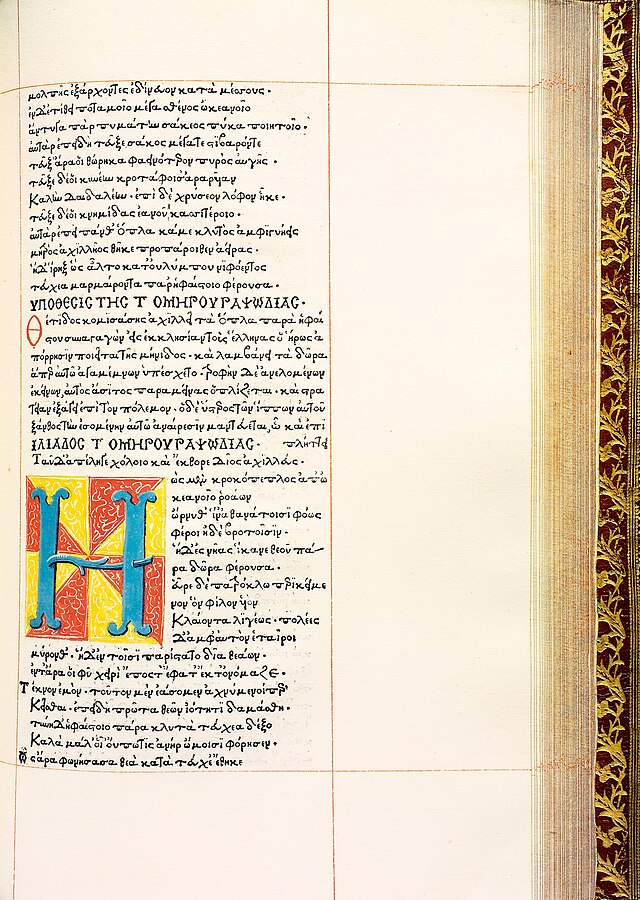 μολπῆς ἐξάρχοντες ἐδίνευον κατὰ μέσσους.
ἐν δ' ἐτίθει ποταμοῖο μέγα σθένος ὠκεανοῖο
ἄντυγα πὰρ πυμάτην σάκεος πύκα ποιητοῖο.
αὐτὰρ ἐπειδὴ τεῦξε σάκος μέγα τε στιβαρόν τε
τεῦξ' ἄρα οἱ θώρηκα φαεινότερον πυρὸς αὐγῆς.
τεῦξε δέ οἱ κυνέην κροτάφοισ ἀραρυῖαν
Καλὴν δαιδαλέην. ἐπὶ δὲ χρύσεον λόφον ἧκε.
τεῦξε δέ οἱ κνημίδας ἑανοῦ κασσιτέροιο.
αὐτὰρ ἐπεὶ πάνθ' ὅπλα κάμε κλυτὸς ἀμφιγυήεις
μητρὸς ἀχιλλῆος θῆκε προπάροιθεν ἀείρας.
ἡ δ' ἴρηξ ὣς ἆλτο κατ' οὐλύμπου νιφόεντος
τεύχεα μαρμαίροντα παρ' ἡφαίστοιο φέρουσα.
ΥΠΟΘΕΣΙΣ ΤΗΣ Τ ΟΜΗΡΟΥ ΡΑΨΩΔΙΑΣ.
Θέτιδος κομισάσης ἀχιλλεῖ τὰ ὅπλα παρὰ ἡφαί
στου συναγαγὼν εἰς ἐκκλησίαν τοὺς ἕλληνας ὁ ἥρως ἀ
πόρρησιν ποιεῖται τῆς μήνιδος. καὶ λαμβάνει τὰ δῶρα
ἅπερ αὐτῷ ἀγαμέμνων ὑπέσχετο. τροφὴν δὲ ἀνελομένων
ἐκείνων, αὐτὸς ἄσιτος παραμείνας ὁπλίζεται. καὶ στρα
τείαν ἐξάγει ἐπὶ τὸν πόλεμον. ὁ δὲ εἷς τῶν ἵππων αὐτοῦ
ξάνθος τὴν ἐσομένην αὐτῷ ἀναίρεσιν μαντεύεται, ᾧ καὶ ἐπι
ΙΛΙΑΔΟΣ Τ ΟΜΗΡΟΥ ΡΑΨΩΔΙΑΣ. πλήττει
Ταῦ δ' ἀπέληγε χόλοιο καὶ ἔκθορε δῖος ἀχιλλεύς.
Ηὼς μὲν κροκόπεπλος ἀπ' ὠ
κεανοῖο ῥοάων
ὤρνυθ' ἵν' ἀθανάτοισι φόως
φέροι ἠδὲ βροτοῖσιν.
ἡ δ' ἐς νῆας ἵκανε θεοῦ πά
ρα δῶρα φέρουσα.
εὗρε δὲ πατρόκλῳ περικείμε
νον ὃν φίλον υἱὸν
Κλαίοντα λιγέως. πολέες
δ' ἀμφ' αὐτὸν ἑταῖροι
μύρονθ'. ἡ δ' ἐν τοῖσι παρίστατο δῖα θεάων.
ἔν τ' ἄρα οἱ φῦ χειρὶ ἔπος τ' ἔφατ' ἔκ τ' ὀνόμαζε.
Τέκνον ἐμὸν. τοῦτον μὲν ἐάσομεν ἀχνύμενοί περ
Κεῖσθαι. ἐπειδὴ πρῶτα θεῶν ἰότητι δαμάσθη.
τύνη δ' ἡφαίστοιο πάρα κλυτὰ τεύχεα δέξο
Καλὰ μάλ' οἷ' οὔπω τὶς ἀνὴρ ὤμοισι φόρησεν.
ὣς ἄρα φωνήσασα θεὰ κατὰ τεύχε' ἔθηκε